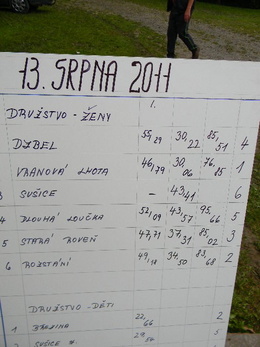 13. SRPNA 2011
DRUŽSTVO - ŽENY 1.
DZBEL 55,29 30,22 85,51 4
VRANOVÁ LHOTA 46,79 30,06 76,85 1
3 SUŠICE - 43,41 6
4 DLOUHÁ LOUČKA 52,09 43,57 95,66 5
5 STARÁ ROVEŇ 47,71 37,31 85,02 3
6 ROZSTÁNÍ 49,18 34,50 83,68 2
DRUŽSTVO - DĚTI
1 BŘEZINA 22,66
2 SUŠICE